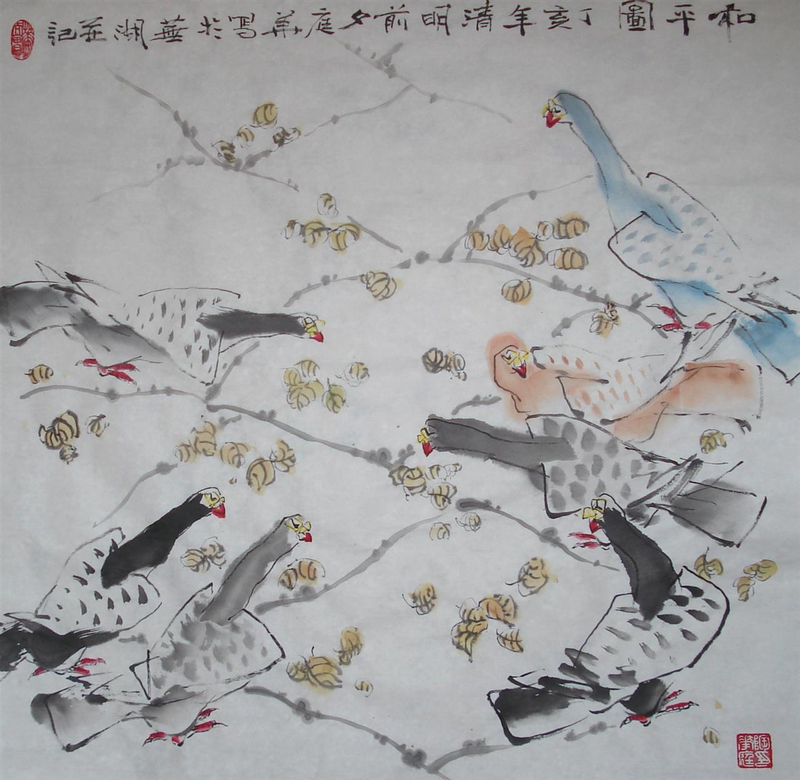 和平圖丁亥年清明前夕庭華寫於華湖並記